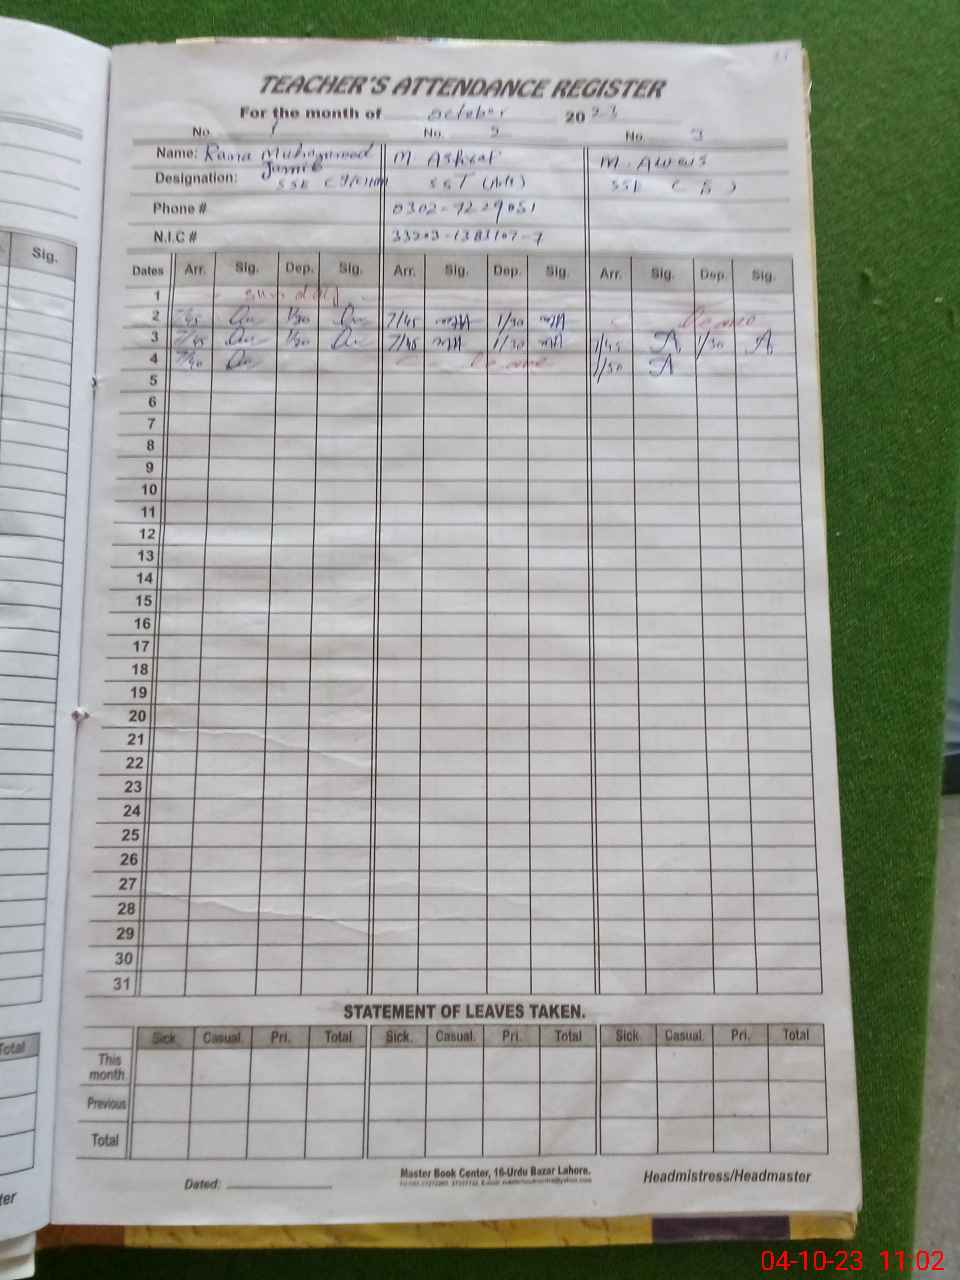 TEACHER'S ATTENDANCE REGISTER
For the month of october 2023
No. 1 No. 2 No. 3
Name: Rana Muhammad M Ashraf M. Awais
Jamil
Designation: SSE SST (Arts) SSE
Phone # 0302-7229051
N.I.C #
Dates Arr. Sig. Dep. Sig. Arr. Sig. Dep. Sig. Arr. Sig. Dep. Sig.
1 sunday
2 7/45 1/30 7/45 1/30 Leave
3 7/45 1/30 7/45 1/30 7/45 A 1/30 A
4 7/50 Leave 7/50 A
5
6
7
8
9
10
11
12
13
14
15
16
17
18
19
20
21
22
23
24
25
26
27
28
29
30
31
STATEMENT OF LEAVES TAKEN.
Sick. Casual. Pri. Total Sick. Casual. Pri. Total Sick. Casual. Pri. Total
This
month
Previous
Total
Master Book Center, 16-Urdu Bazar Lahore.
Dated: Headmistress/Headmaster
Sig.
Total
ter
04-10-23 11:02